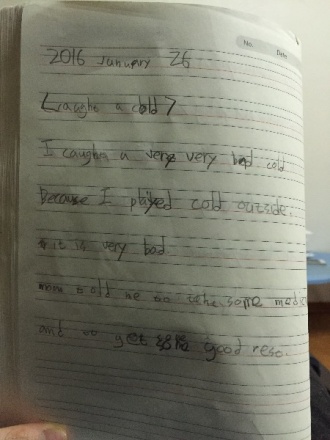 No. Date
2016 January 26
<Caught a cold>
I caught a very very bad cold
Because I played cold outside.
it is very bad
mom told me to take some medi
and to get some good rest.